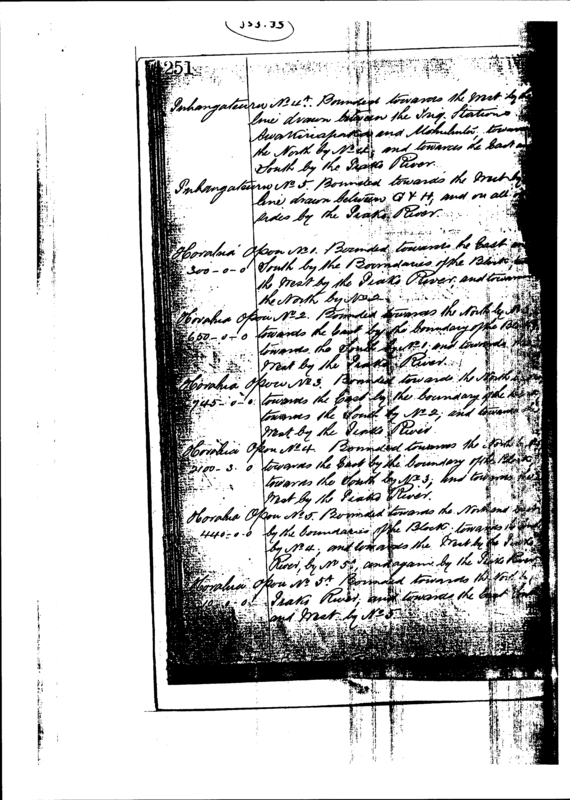 251
Puhangateuru No 4A. Bounded towards the West by
line drawn between the Trig. Stations
and towards
the North by No 4, and towards the East and
South by the Piako River.
Puhangateuru No 5. Bounded towards the West by
line drawn between G & H, and on all
sides by the Piako River.
Horahia Opou No 1. Bounded towards the East and
300-0-0 South by the Boundaries of the Block,
the West by the Piako River and towards
the North by No 2.
Horahia Opou No 2. Bounded towards the North by No
650-0-0 towards the East by the boundary of the Block
towards the South by No 1, and towards the
West by the Piako River.
Horahia Opou No 3. Bounded towards the North
745-0-0 towards the East by the boundary of the Block
towards the South by No 2, and towards
West by the Piako River.
Horahia Opou No 4. Bounded towards the North by
2100-3-0 towards the East by the boundary of the Block
towards the South by No 3, and towards the
West by the Piako River.
Horahia Opou No 5. Bounded towards the North and East
440-0-0 by the boundaries of the Block, towards the South
by No 4, and towards the West by the Piako
River, by No 5A, and again by the Piako River
Horahia Opou No 5A. Bounded towards the
Piako River, and towards the East
and West by No 5.